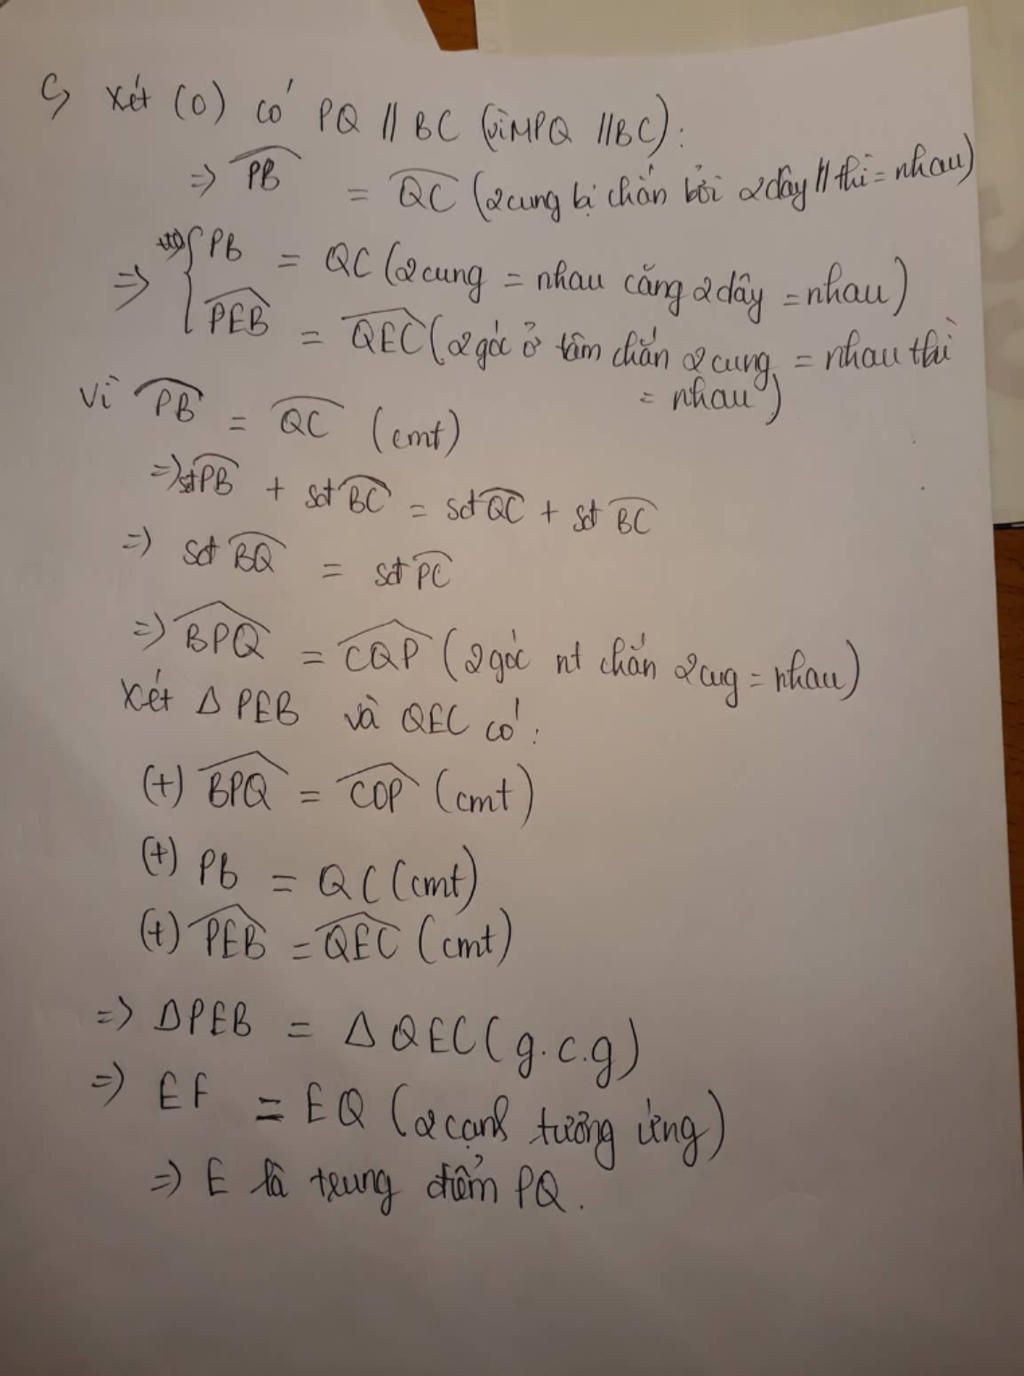 c, Xét (O) có PQ // BC (vì MPQ // BC):
=> PB = QC (2 cung bị chắn bởi 2 dây // thì = nhau)
=> { PB = QC (2 cung = nhau căng 2 dây = nhau)
PEB = QEC (2 góc ở tâm chắn 2 cung = nhau thì
= nhau)
Vì PB = QC (cmt)
=> sđ PB + sđ BC = sđ QC + sđ BC
=> sđ BQ = sđ PC
=> BPQ = CQP (2 góc nt chắn 2 cug = nhau)
Xét Δ PEB và QEC có:
(+) BPQ = COP (cmt)
(+) PB = QC (cmt)
(+) PEB = QEC (cmt)
=> ΔPEB = ΔQEC (g.c.g)
=> EF = EQ (2 cạnh tương ứng)
=> E là trung điểm PQ.